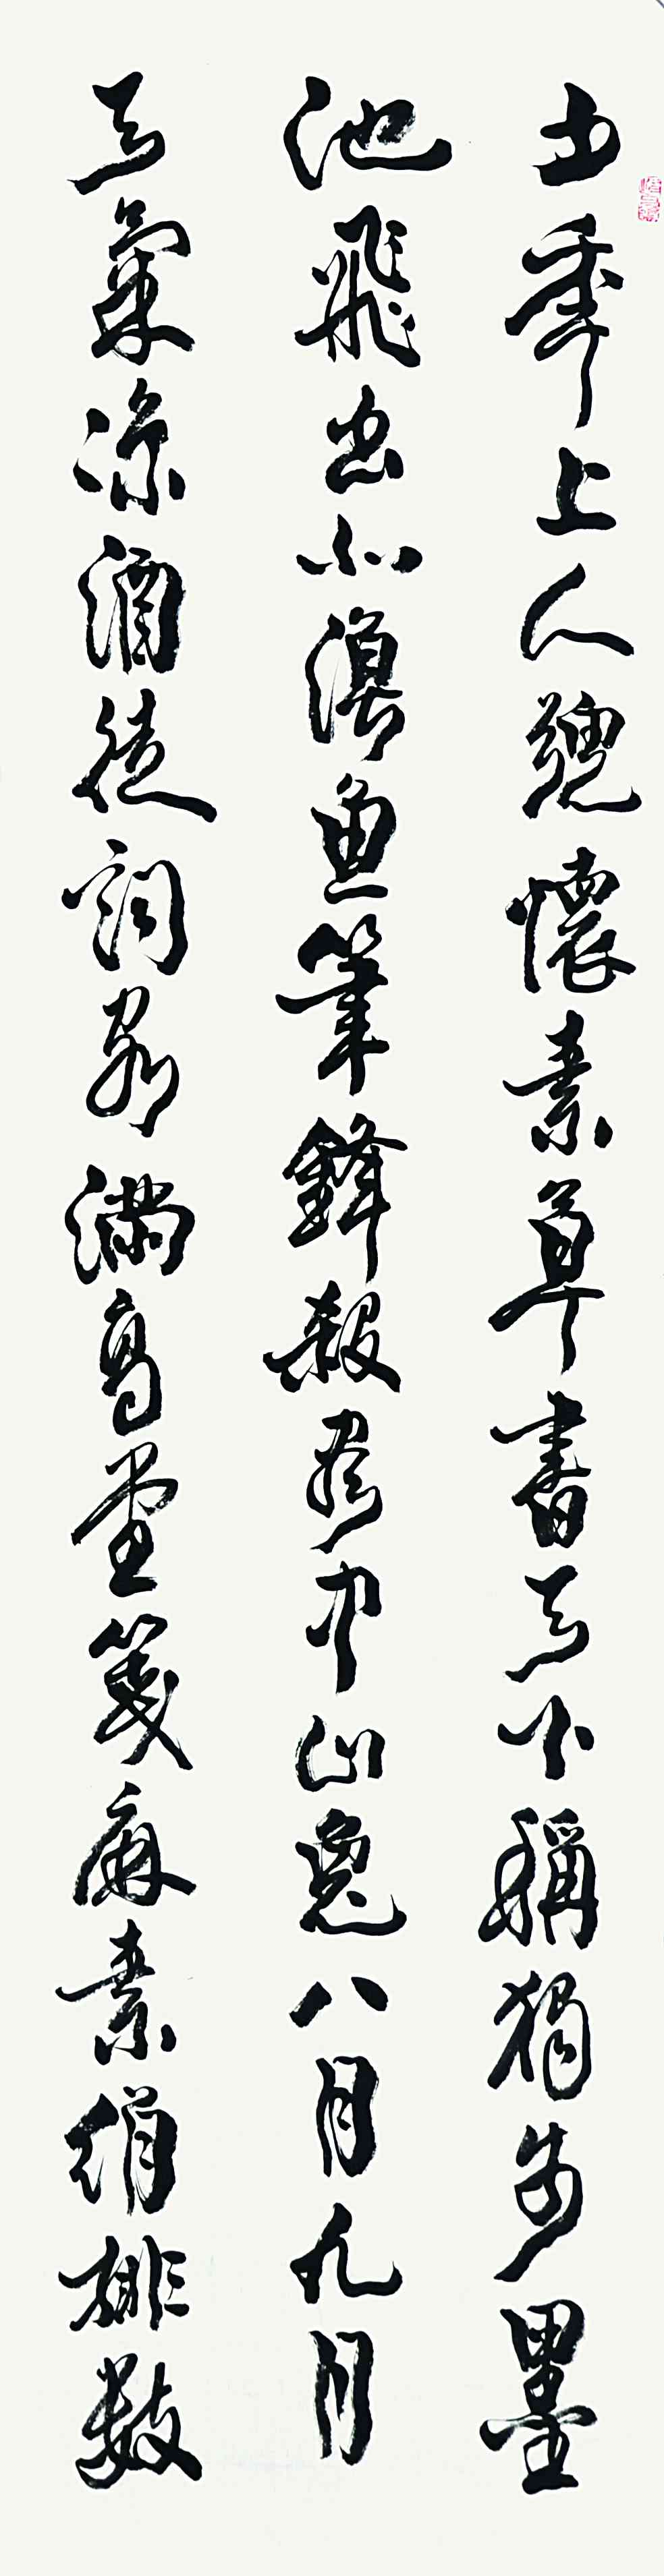 少年上人號懷素草書天下稱獨步墨
池飛出北溟魚筆鋒殺盡中山兔八月九月
天氣涼酒徒詞客滿高堂箋麻素絹排數